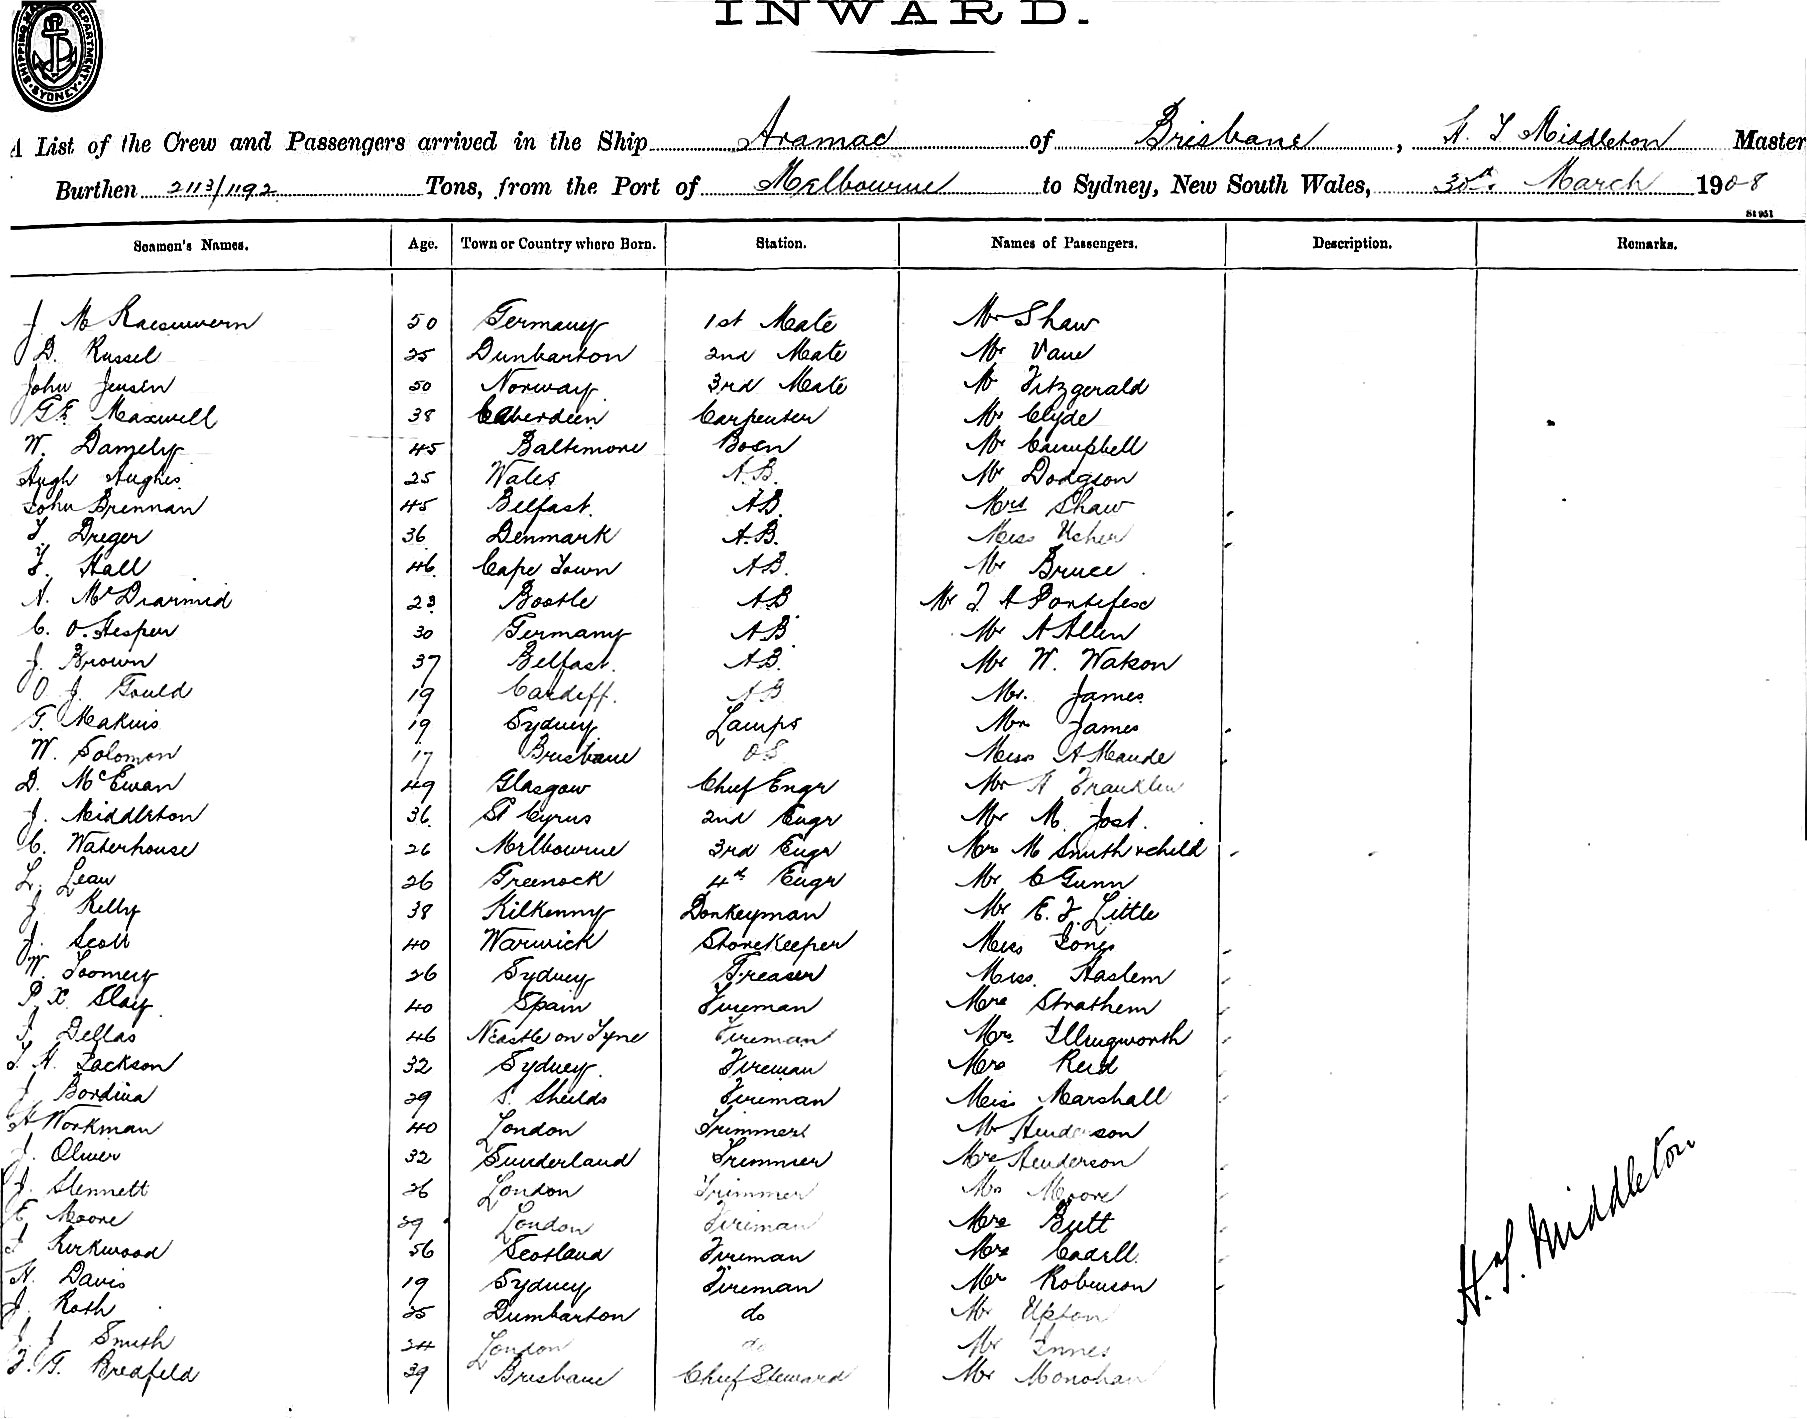 INWARD.
SHIPPING MASTER'S DEPARTMENT. SYDNEY
A List of the Crew and Passengers arrived in the Ship Aramac of Brisbane, H. S Middleton Master
Burthen 2113/1192 Tons, from the Port of Melbourne to Sydney, New South Wales, 30th March 1908
St 951
Seamen's Names. Age. Town or Country where Born. Station. Names of Passengers. Description. Remarks.
J. M 50 Germany 1st Mate Mr Shaw
D. Russel 25 Dunbarton 2nd Mate Mr Vane
John Jensen 50 Norway. 3rd Mate Mr Fitzgerald
Maxwell 38 Aberdeen Carpenter Mr Clyde
W. Damely 45 Baltimore Bosn Mr Campbell
Hugh Hughes 25 Wales A.B. Mr Dodgson
John Brennan 45 Belfast. AB. Mrs Shaw
Dreger 36 Denmark A.B. Miss Usher
Hall 46 Cape Town AB. Mr Bruce
A. McDiarmid 23 Bootle AB Mr J A Pontifex
C. O. Jespen 30 Germany AB Mr A Allen
J. Brown 37 Belfast. AB. Mr W. Watson
O J. Gould 19 Cardiff. AB Mr. James
T. Makins 19 Sydney Lamps Mrs James
W. Solomon 17 Brisbane OS Miss A Maude
D. McEwan 49 Glasgow Chief Engr Mr A Franklin
J. Middleton 36 St Cyrus 2nd Engr Mr M. Jost.
C. Waterhouse 26 Melbourne 3rd Engr Mrs M Smith & child
L. Lean 26 Greenock 4th Engr Mr C Gunn
J. Kelly 38 Kilkenny Donkeyman Mr E. J. Little
J. Scott 40 Warwick Storekeeper Miss Jones
W. Toomey 26 Sydney Greaser Miss. Haslem
P. X. Slay 40 Spain Fireman Mrs Strathem
J. Dellas 46 N'castle on Tyne Fireman Mrs. Illingworth
J. H. Jackson 32 Sydney. Fireman Mrs Reid
J Bordina 29 S. Shields Fireman Miss Marshall
A Workman 40 London Trimmer Mr Henderson
J. Oliver 32 Sunderland Trimmer Mrs Henderson
J. Stennett 26 London Trimmer Mrs Moore
E. Moore 29 London Fireman Mrs Butt
J Kirkwood 56 Scotland Fireman Mrs Cadell.
H. Davis 19 Sydney Fireman Mr Robinson
J. Roth 25 Dumbarton do Mr Upton
J. J Smith 24 London do Mr Innes
J. G. Bredfeld 39 Brisbane Chief Steward Mr Monohan
H. S. Middleton